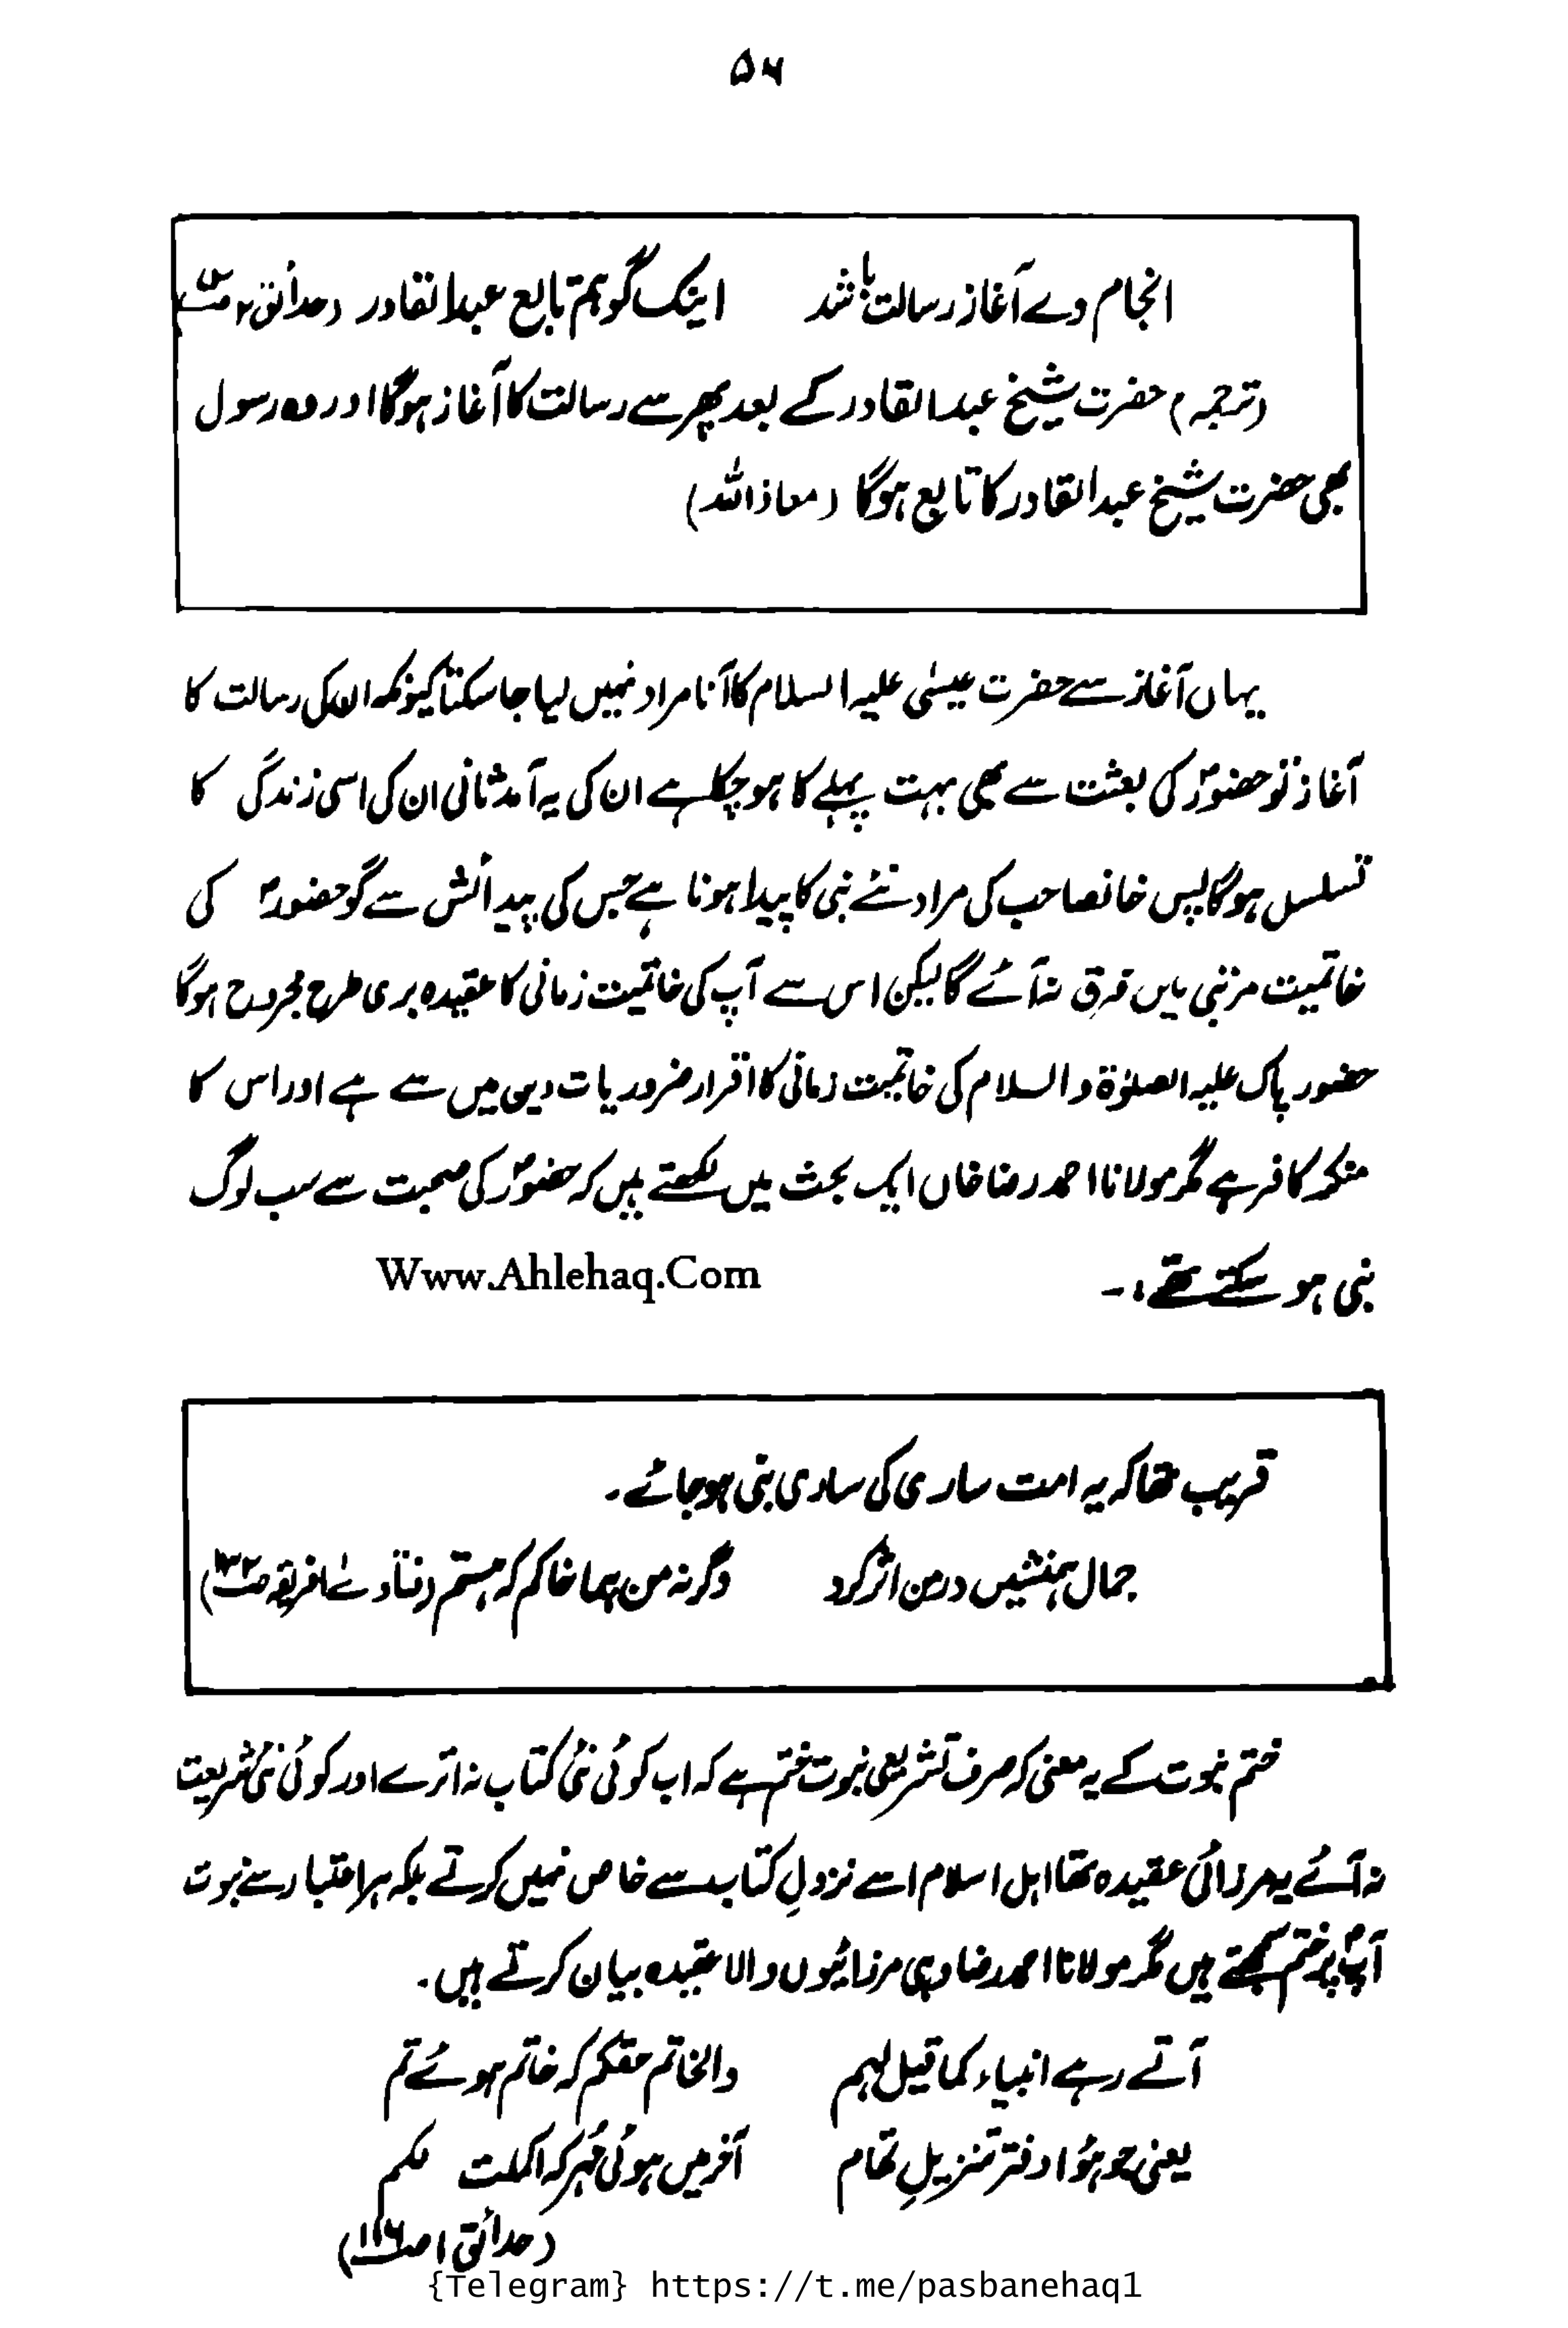 ۵۶
انجام وے آغاز رسالت باشد اینک گو ہم تابع عبدالقادر (حدائق ۲ ص
(ترجمہ) حضرت شیخ عبدالقادر کے بعد پھر سے رسالت کا آغاز ہوگا اور وہ رسول
بھی حضرت شیخ عبدالقادر کا تابع ہوگا (معاذاللہ)
یہاں آغاز سے حضرت عیسیٰ علیہ السلام کا آنا مراد نہیں لیا جاسکتا کیونکہ ان کی رسالت کا
آغاز تو حضورؐ کی بعثت سے بھی بہت پہلے کا ہوچکا ہے ان کی یہ آمد ثانی ان کی اسی زندگی کا
تسلسل ہوگا پس خانصاحب کی مراد نئے نبی کا پیدا ہونا ہے جس کی پیدائش سے گو حضورؐ کی
خاتمیت مرتبی میں فرق نہ آئے گا لیکن اس سے آپ کی خاتمیت زمانی کا عقیدہ بری طرح مجروح ہوگا
حضور پاک علیہ الصلوٰۃ والسلام کی خاتمیت زمانی کا اقرار ضروریات دین میں سے ہے اور اس کا
منکر کافر ہے مگر مولانا احمد رضا خاں ایک بحث میں لکھتے ہیں کہ حضورؐ کی صحبت سے سب لوگ
نبی ہو سکتے تھے :۔
Www.Ahlehaq.Com
قریب تھا کہ یہ امت ساری کی ساری نبی ہوجائے۔
جمال ہمنشیں درمن اثر کرد وگرنہ من ہما خاکم کہ ہستم (فتاوےٰ افریقہ ص۱۳۲)
ختم نبوت کے یہ معنی کہ صرف تشریعی نبوت ختم ہے کہ اب کوئی نئی کتاب نہ اترے اور کوئی نئی شریعت
نہ آئے یہ مرزائی عقیدہ تھا اہل اسلام اسے نزولِ کتاب سے خاص نہیں کرتے بلکہ ہر اعتبار سے نبوت
آپؐ پر ختم سمجھتے ہیں مگر مولانا احمد رضا وہی مرزائیوں والا عقیدہ بیان کرتے ہیں۔
آتے رہے انبیاء کما قیل لہم والخاتم حقکم کہ خاتم ہوئے تم
یعنی جو ہوُا دفتر تنزیلِ تمام آخر میں ہوئی مُہر کہ اکملت لکم
(حدائق ۱ ص۱۱۶)
{Telegram} https://t.me/pasbanehaq1